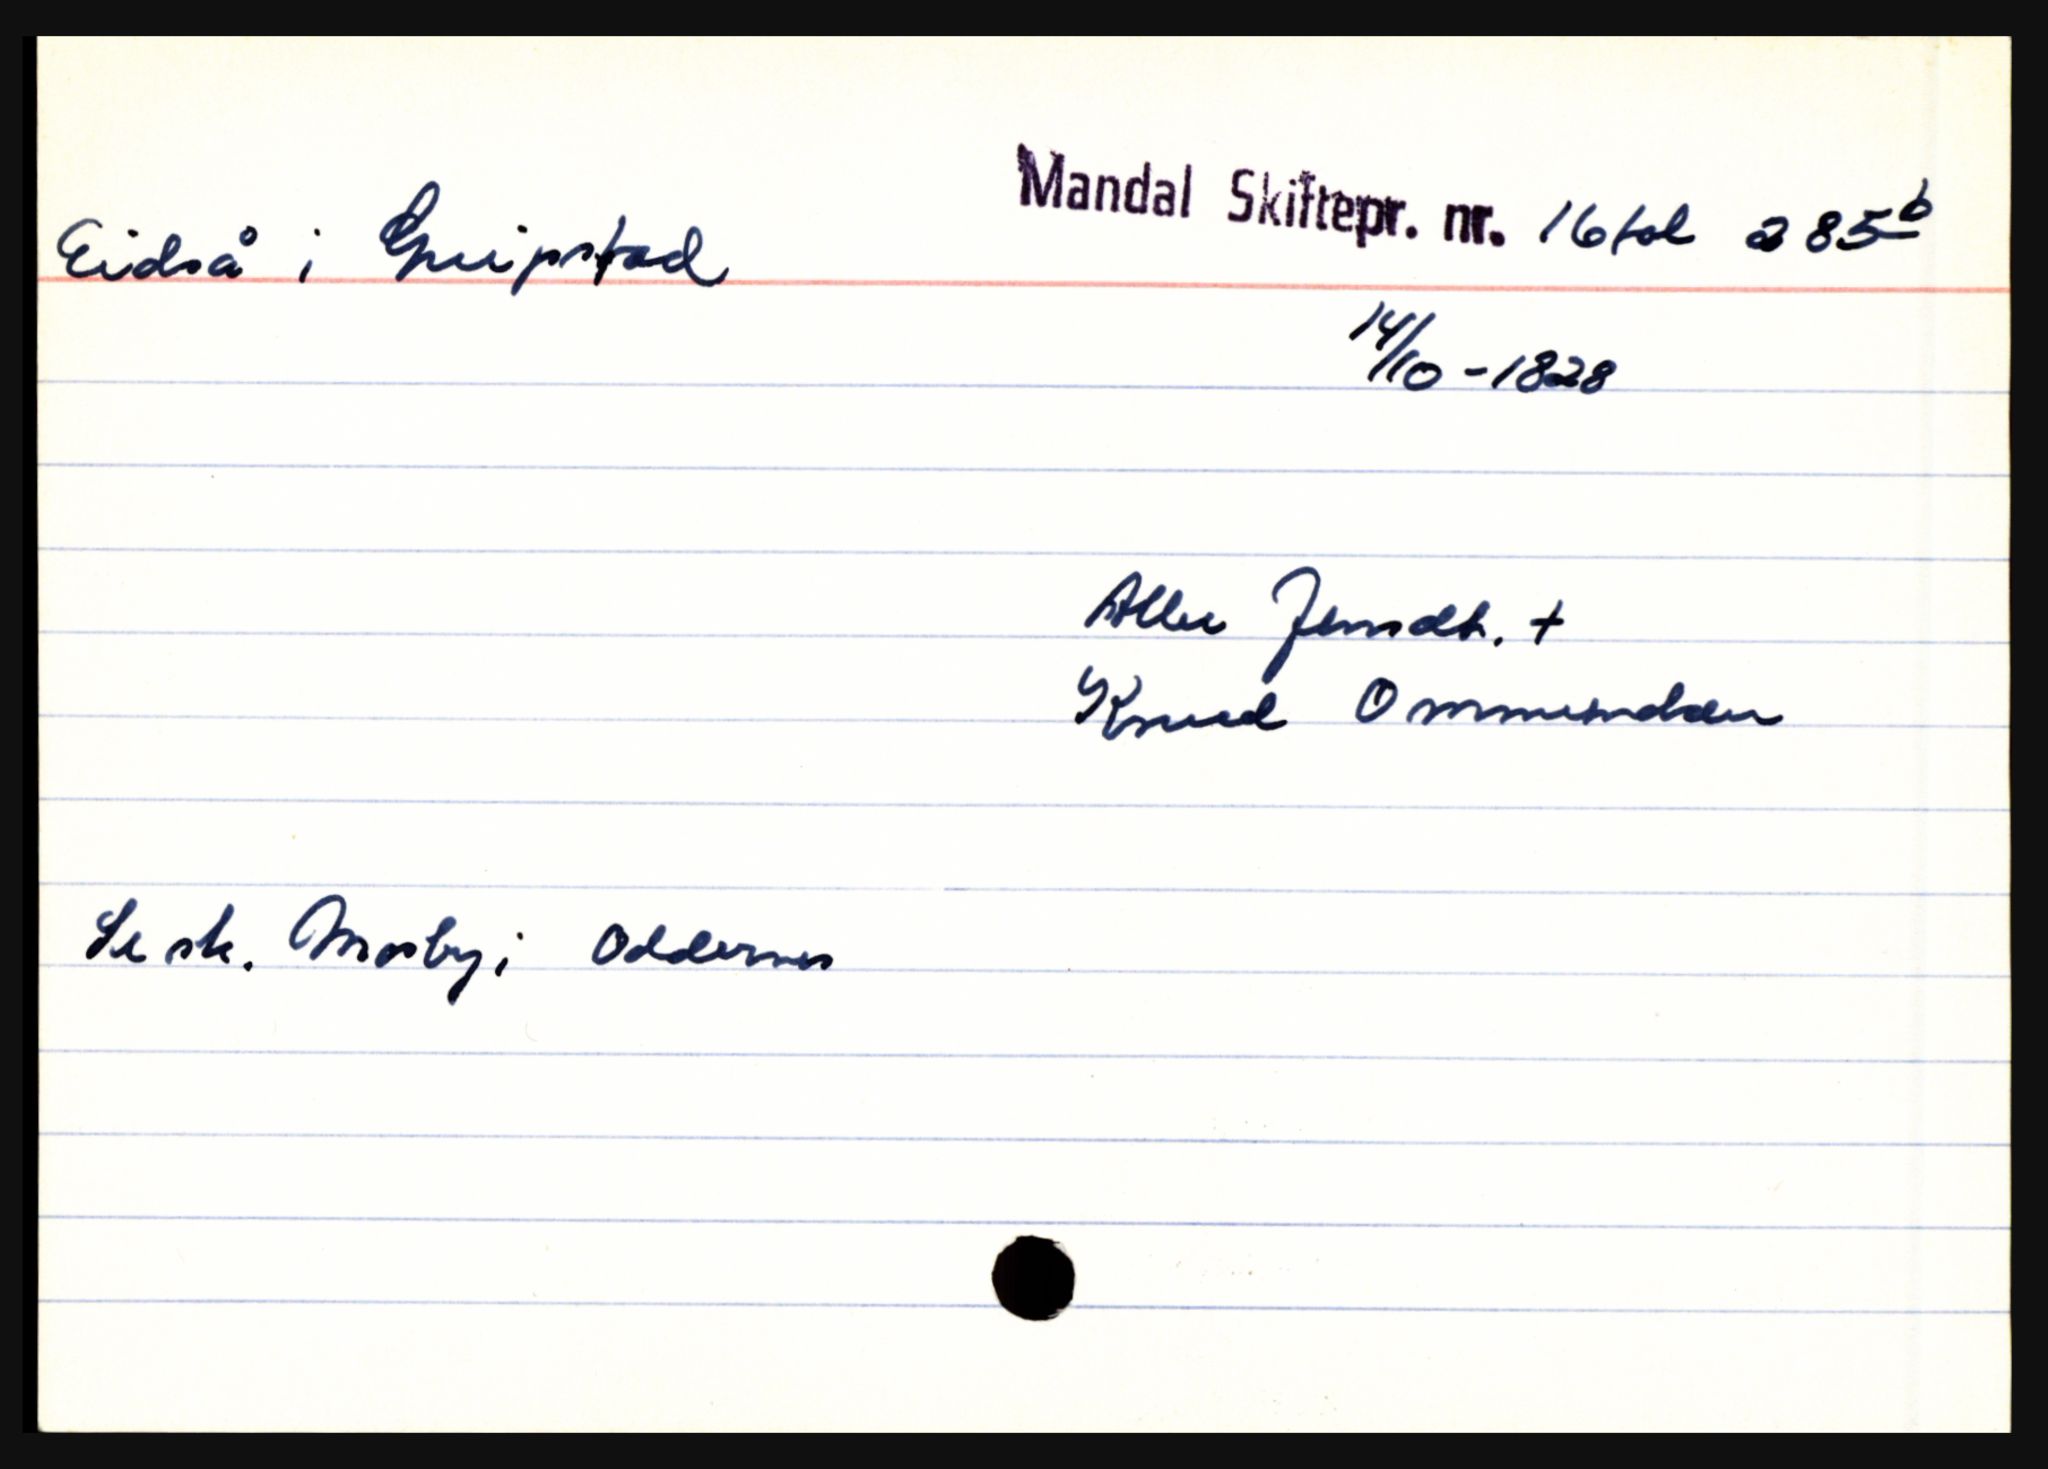 Eidså i Greipstad
Mandal Skiftepr. nr. 16 fol 285b
14/10 - 1828
Aller Jensdtr. +
Knud Ommundsen
Se sk. Mosby i Oddernes